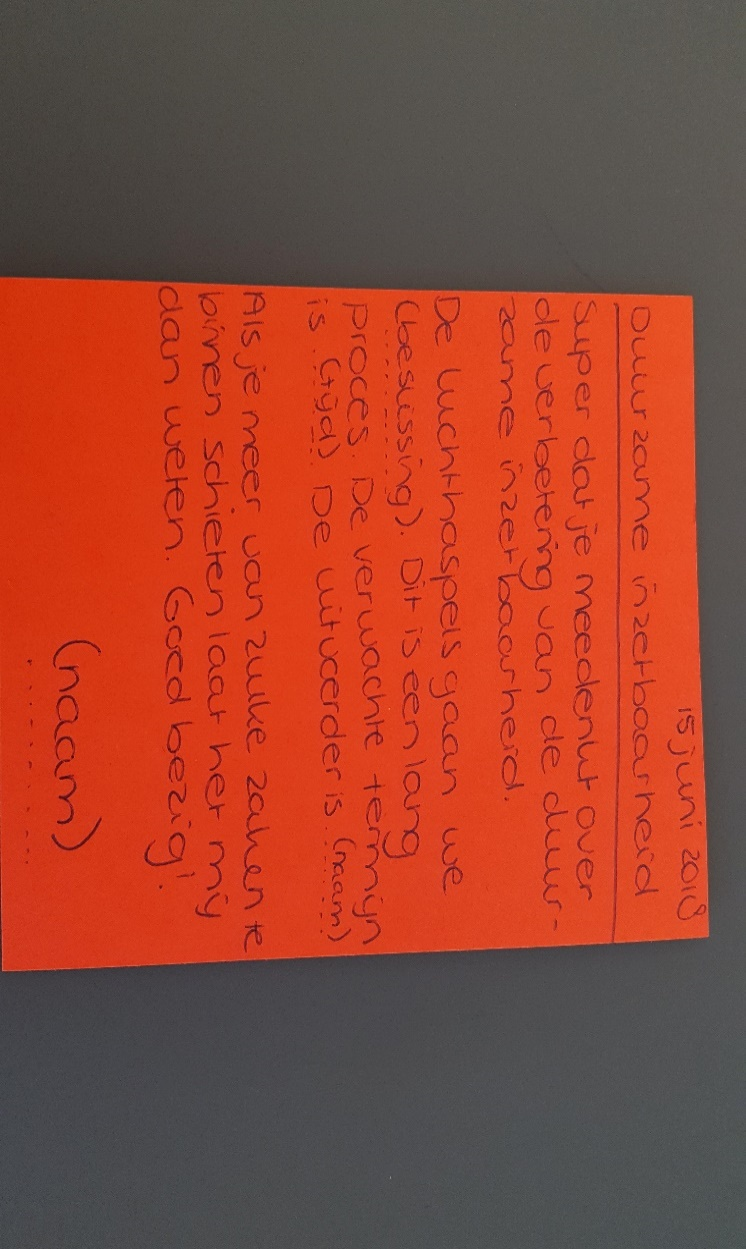 15 juni 2018
Duurzame inzetbaarheid
Super dat je meedenkt over
de verbetering van de duur-
zame inzetbaarheid.
De luchthaspels gaan we
(beslissing). Dit is een lang
proces. De verwachte termijn
is (tijd) De uitvoerder is (naam)
Als je meer van zulke zaken te
binnen schieten laat het mij
dan weten. Goed bezig!
(naam)